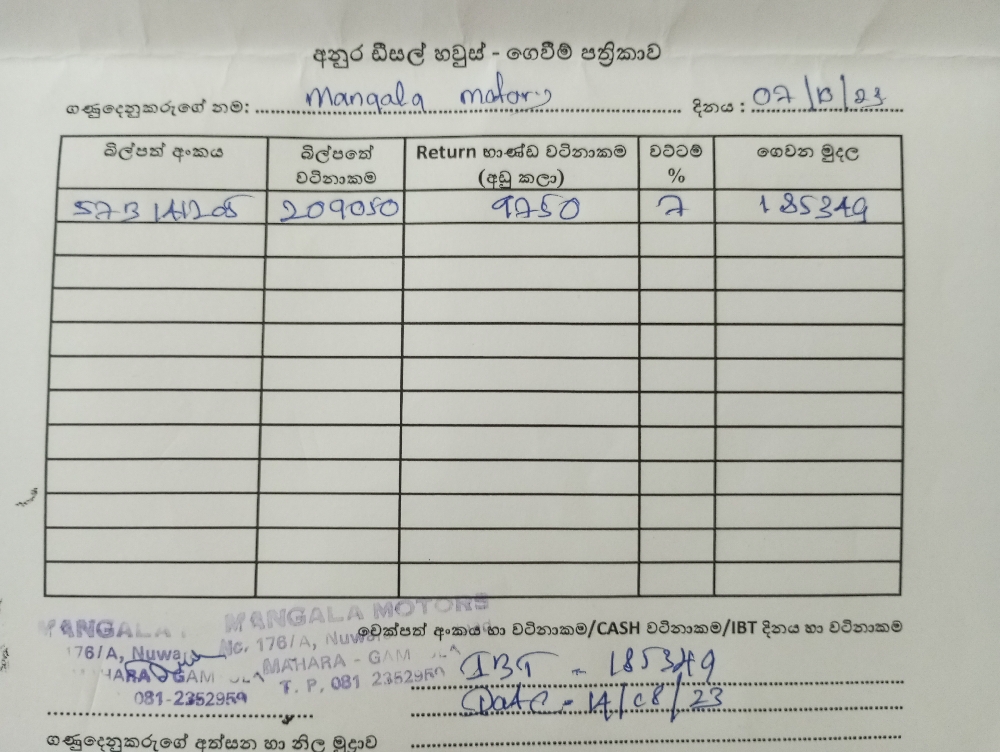 අනුර ඩීසල් හවුස් - ගෙවීම් පත්‍රිකාව
ගණුදෙනුකරුගේ නම: Mangala motors දිනය :
බිල්පත් අංකය බිල්පතේ වටිනාකම Return භාණ්ඩ වටිනාකම (අඩු කලා) වට්ටම් % ගෙවන මුදල
209050 9750 7 185349
MANGALA MOTORS
176/A, Nuwa No. 176/A, Nuw
MAHARA - GAM
T. P. 081 2352959
081-2352959
චෙක්පත් අංකය හා වටිනාකම/CASH වටිනාකම/IBT දිනය හා වටිනාකම
IBT - 185349
Date - 14/08/23
ගණුදෙනුකරුගේ අත්සන හා නිල මුද්‍රාව